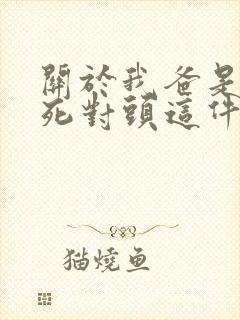 關於我爸是
死對頭這件
猫燒鱼